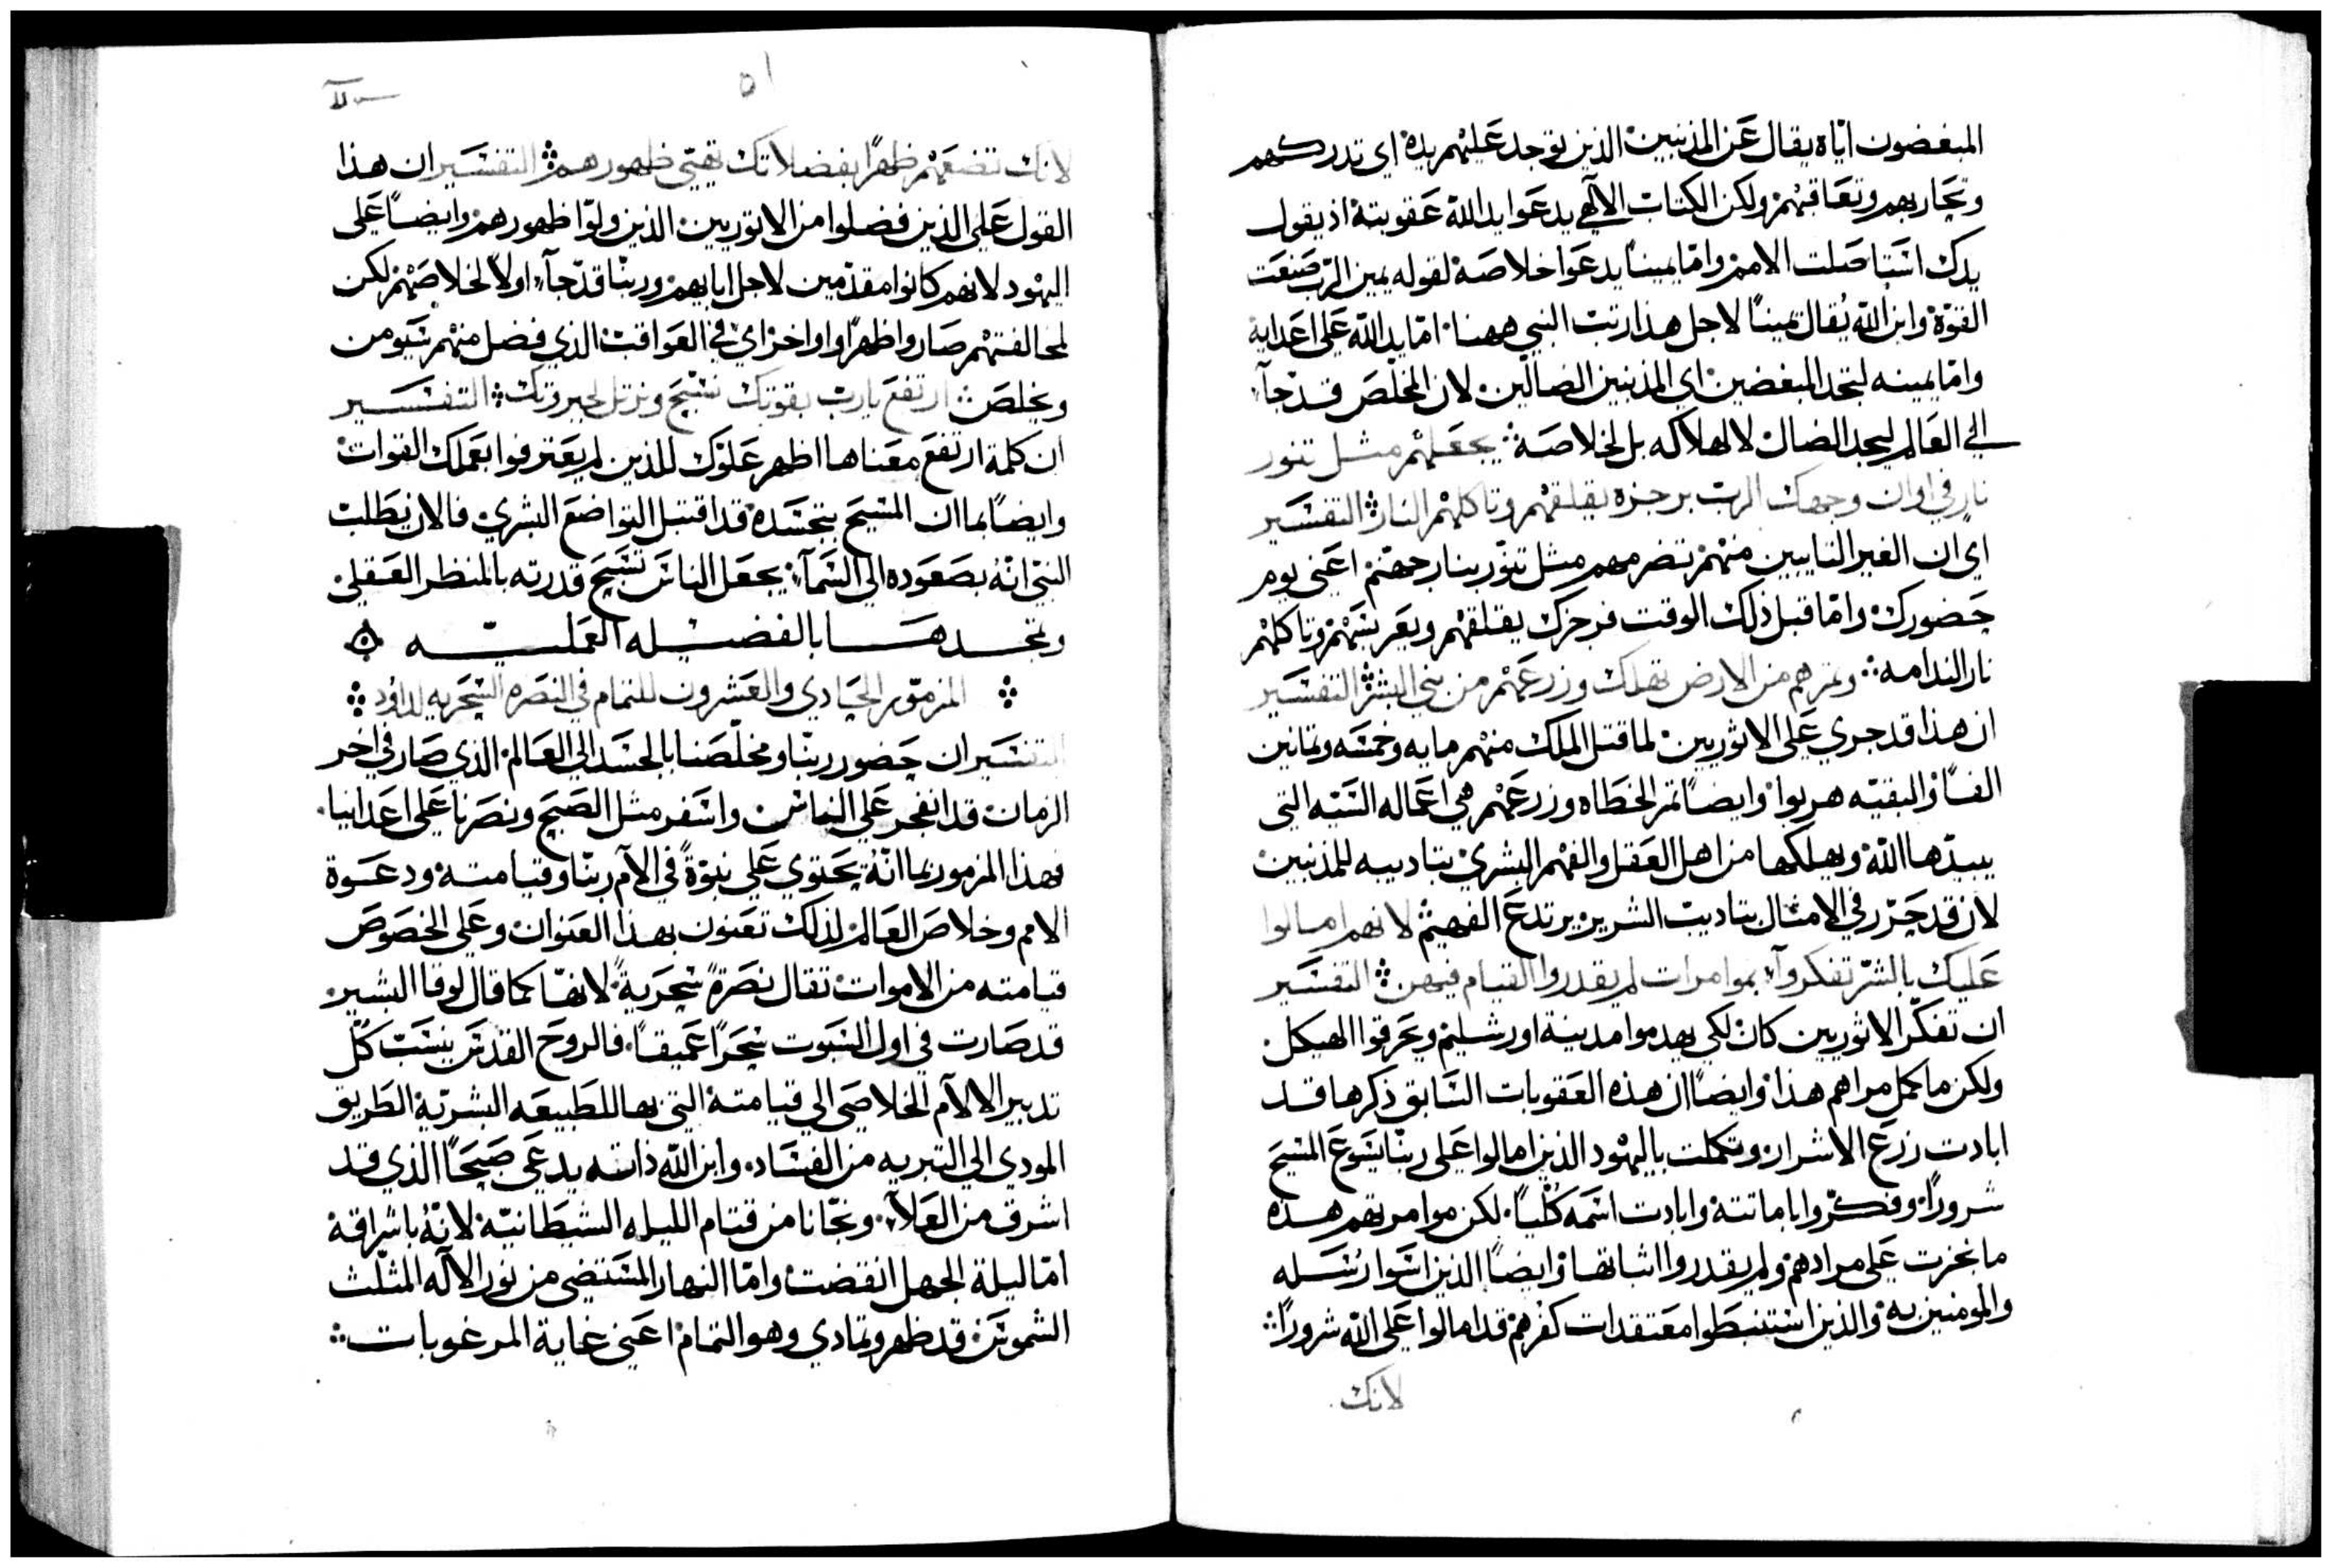 المبغضون اياه يقال عن المذنبين الذين توجد عليهم يده اي تدركهم
وتحاربهم وتعاقبهم ولكن الكتاب الالهي يدعوا يد الله عقوبته اذ يقول
يدك استاصلت الامم واما يميناً يدعوا خلاصه لقوله يمين الرب صنعت
القوة وابن الله يُقال يميناً لاجل هذا رتب النبي ههنا اما يد الله على اعدايه
واما يمينه لتجد المبغضين اي المذنبين الضالين لان المخلص قد جآء
الي العالم ليجد الضال لا لهلاكه بل لخلاصه يجعلهم مثل تنور
نار في اوان وجهك الرب برجزه يقلقهم وتاكلهم النار التفسير
اي ان الغير التايبين منهم تضرمهم مثل تنور بنار جهنم اعني يوم
حضورك واما قبل ذلك الوقت فرجزك يقلقهم وتاكلهم
نار الندامه وثمرهم من الارض تهلك وزرعهم من بني البشر التفسير
ان هذا قد جري على الاثوريين لما قتل الملك منهم مايه وخمسه وثمانين
الفاً والبقيه هربوا وايضاً ثمر الخطاه وزرعهم هي اعماله السيه التي
يبيدها الله ويهلكها من اهل العقل والفهم البشري بتاديبه للمذنبين
لان قد حرر في الامثال بتاديب الشرير يرتدع الفهيم لانهم امالوا
عليك بالشر تفكروا بموامرات لم يقدروا القيام فيهن التفسير
ان تفكر الاثوريين كان لكي يهدموا مدينة اورشليم ويحرقوا الهيكل
ولكن ما كمل مراهم هذا وايضاً ان هذه العقوبات السابق ذكرها قد
ابادت زرع الاشرار وتكملت باليهود الذين امالوا على ربنا يسوع المسيح
شروراً وفكروا باماتته وابادت اسمه كلياً لكن موامرتهم هذه
ما نجزت على مرادهم ولم يقدروا اثباتها وايضاً الذين اسوا رسله
والمومنين به والذين استنبطوا معتقدات كفرهم قد امالوا على الله شروراً
لانك
٥١
لانك تضعهم ظهراً بفضلاتك تهيي ظهورهم التفسير ان هذا
القول على الذين فضلوا من الاثوريين الذين ولوا ظهورهم وايضاً على
اليهود لانهم كانوا مقدمين لاجل ابايهم وربنا قد جآء اولاً لخلاصهم لكن
لمخالفتهم صاروا ظهراً واواخر اي في العواقب الذي فضل منهم من
ويخلص ارتفع يارب بقوتك نسبح ونرتل لجبروتك التفسير
ان كلمة ارتفع معناها اظهر علوك للذين لم يعترفوا بعملك القوات
وايضاً بما ان المسيح بتجسده قد اقتبل التواضع البشري فالان يطلب
النبي انه بصعوده الي السمآء يجعل الناس تسبح قدرته بالمنظر العقلي
وتمجدها بالفضيله العمليه
المزمور الحادي والعشرون للتمام في النصره السحريه لداود
التفسير ان حضور ربنا ومخلصنا بالجسد الي العالم الذي صار في اخر
الزمان قد انفجر على الناس واسفر مثل الصبح ونصرنا على اعداينا
فهذا المزمور بما انه يحتوي على نبوة في الآم ربنا وقيامته ودعوة
الامم وخلاص العالم لذلك تعنون بهذا العنوان وعلى الخصوص
قيامته من الاموات تقال نصرة سحرية لانها كما قال لوقا البشير
قد صارت في اول السبوت سحراً عميقاً فالروح القدس ينسب كل
تدبير الالآم الخلاصي الي قيامته التي بها للطبيعه البشرية الطريق
المودي الي التبريه من الفساد وابن الله ذاته يدعي صبحاً الذي قد
اشرق من العلآء ونجانا من قتام الليله الشيطانية لانه باشراقه
اما ليلة الجهل انقضت واما النهار المستضي من نور الاله المثلث
الشموس قد ظهر وتمادي وهو التمام اعني غاية المرغوبات